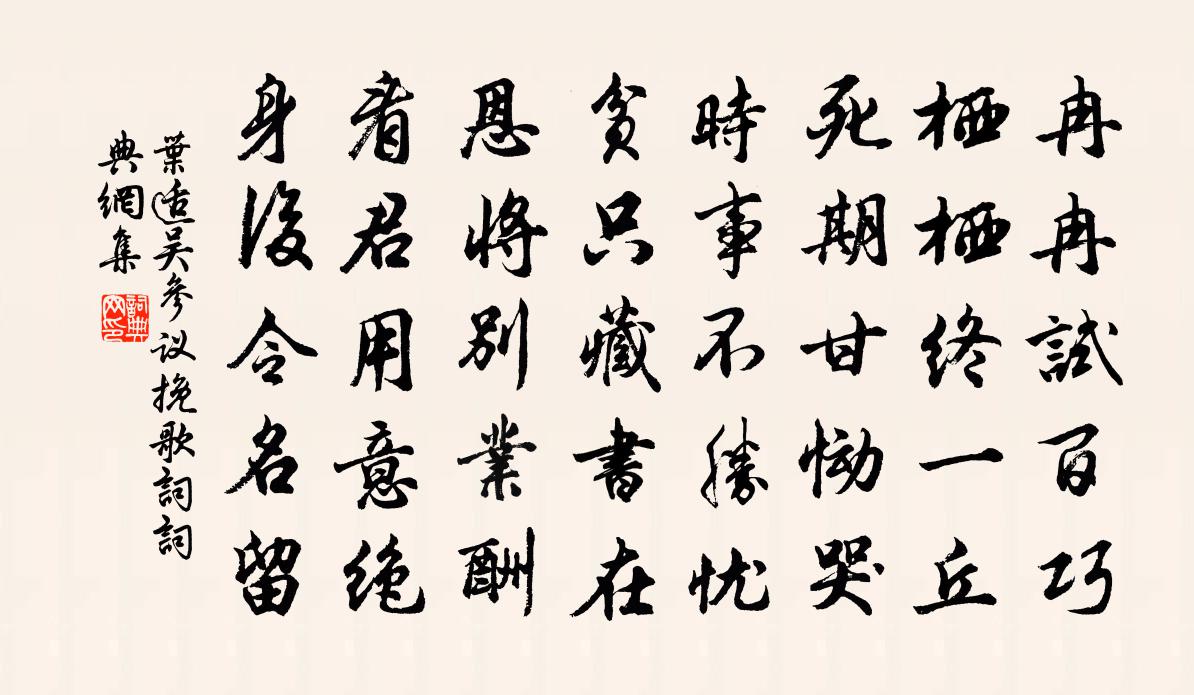 冉冉試百巧
栖栖終一丘
死期甘慟哭
時事不勝忧
貧只藏書在
恩將別業酬
看君用意绝
身後令名留
葉适吴參议挽歌詞詞
典網集
詞典
网印